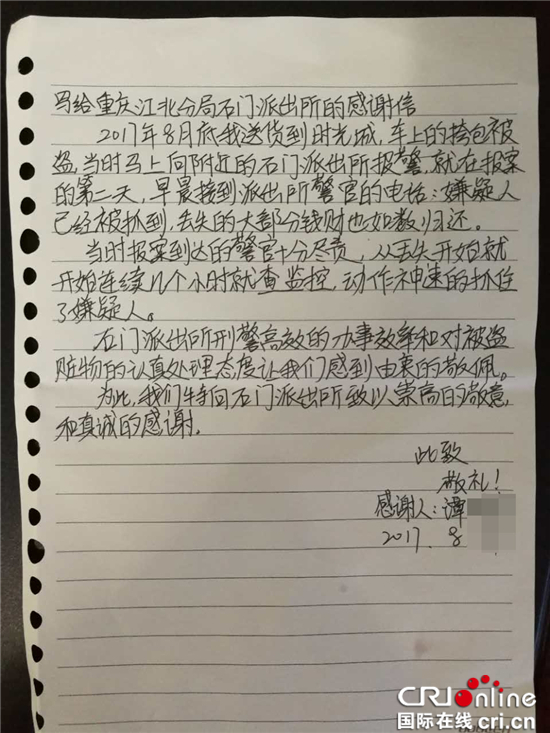 写给重庆江北分局石门派出所的感谢信
2017年8月底我送货到时光城,车上的挎包被
盗,当时马上向附近的石门派出所报警,就在报案
的第二天,早晨接到派出所警官的电话:嫌疑人
已经被抓到,丢失的大部分钱财也如数归还。
当时报案到达的警官十分尽责,从丢失开始就
开始连续几个小时就查监控,动作神速的抓住
了嫌疑人。
石门派出所刑警高效的办事效率和对被盗
赃物的认真处理态度让我们感到由衷的敬佩。
为此,我们特向石门派出所致以崇高的敬意
和真诚的感谢。
此致
敬礼!
感谢人:谭
2017. 8
CRIonline
国际在线 cri.cn